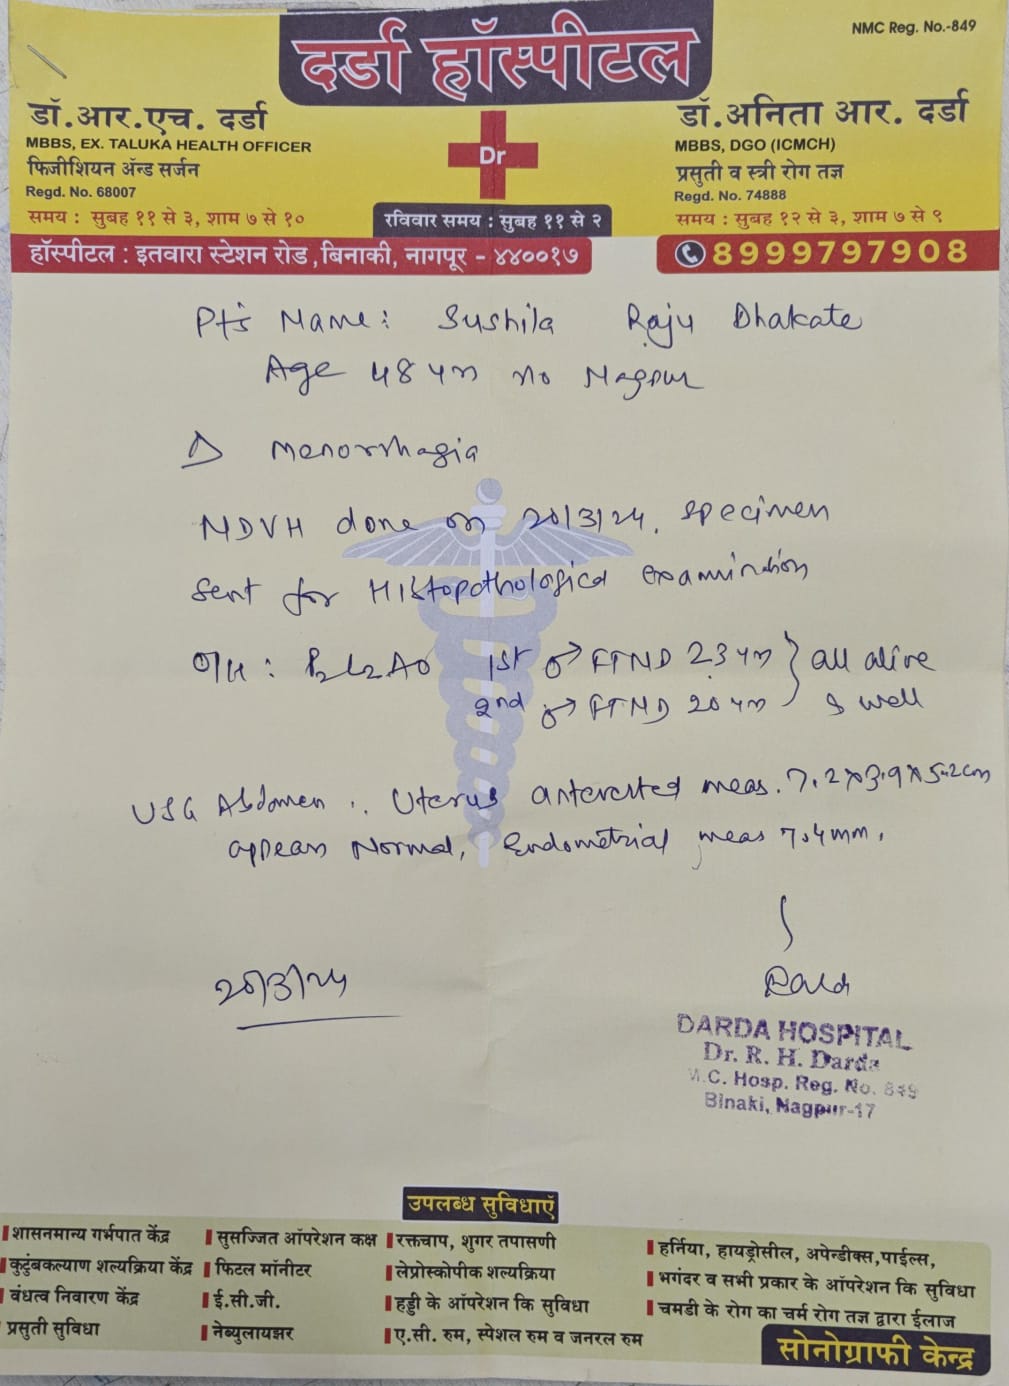 NMC Reg. No.-849
दर्डा हॉस्पीटल
डॉ.आर.एच. दर्डा
MBBS, EX. TALUKA HEALTH OFFICER
फिजीशियन ॲन्ड सर्जन
Regd. No. 68007
समय : सुबह ११ से ३, शाम ७ से १०
Dr
रविवार समय : सुबह ११ से २
डॉ.अनिता आर. दर्डा
MBBS, DGO (ICMCH)
प्रसुती व स्त्री रोग तज्ञ
Regd. No. 74888
समय : सुबह १२ से ३, शाम ७ से ९
हॉस्पीटल : इतवारा स्टेशन रोड, बिनाकी, नागपूर - ४४००१७
8999797908
Pt's Name: Sushila Raju Dhakate
Age 48 yrs Nagpur
Menorrhagia
NDVH done on 20/3/24. specimen
sent for Histopathological examination
O/H : P2L2A0 1st ♂ FTND 23 yrs } all alive
2nd ♂ FTND 20 yrs & well
USG Abdomen : Uterus anteverted meas. 7.2x3.9x5.2cm
appears Normal, Endometrial meas 7.4mm.
20/3/24
Darda
DARDA HOSPITAL
Dr. R. H. Darda
M.C. Hosp. Reg. No. 849
Binaki, Nagpur-17
उपलब्ध सुविधाएँ
शासनमान्य गर्भपात केंद्र
कुटुंबकल्याण शल्यक्रिया केंद्र
बंधत्व निवारण केंद्र
प्रसुती सुविधा
सुसज्जित ऑपरेशन कक्ष
फिटल मॉनीटर
ई.सी.जी.
नेब्युलायझर
रक्तचाप, शुगर तपासणी
लेप्रोस्कोपीक शल्यक्रिया
हड्डी के ऑपरेशन कि सुविधा
ए.सी. रुम, स्पेशल रुम व जनरल रुम
हर्निया, हायड्रोसील, अपेन्डीक्स,पाईल्स,
भगंदर व सभी प्रकार के ऑपरेशन कि सुविधा
चमडी के रोग का चर्म रोग तज्ञ द्वारा ईलाज
सोनोग्राफी केन्द्र